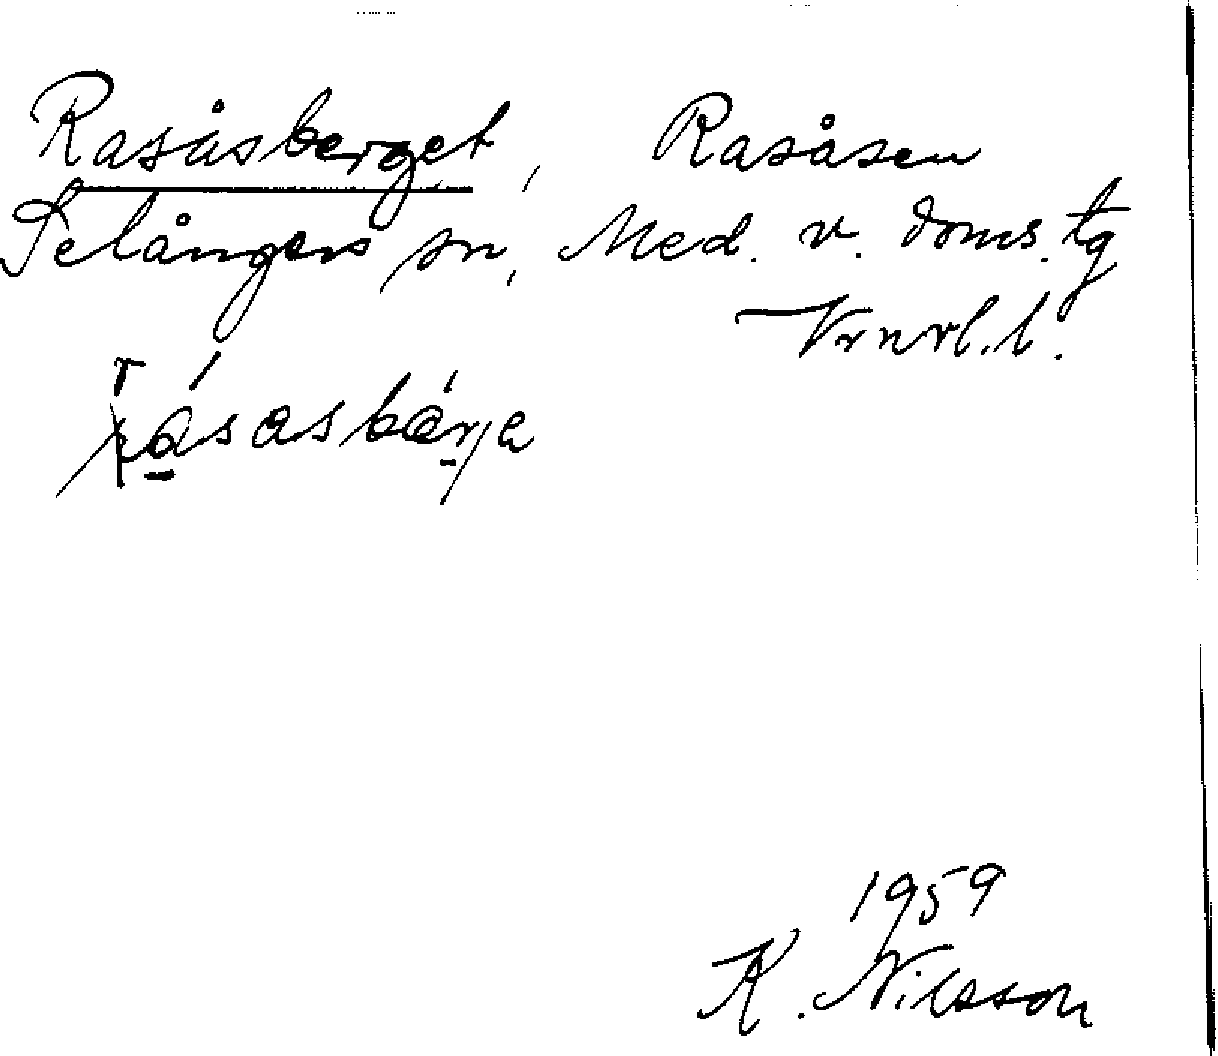 Rasåsberget, Rasåsen
Selångers sn, Med. v. doms. tg
Vrnrl. l.
rásasbárje
1959
K. Nilsson